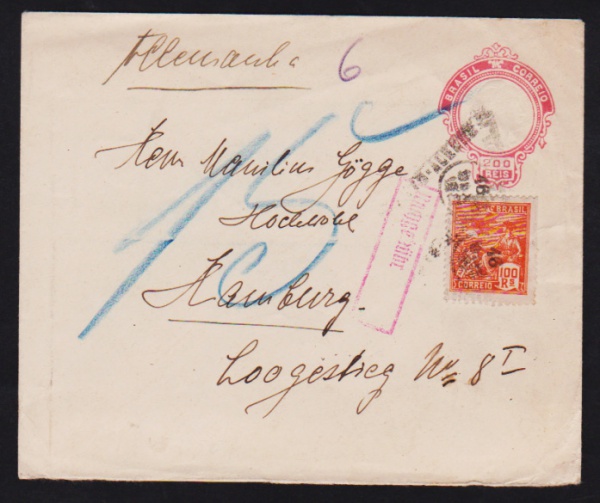 Allemanha 6
BRASIL CORREIO
200
REIS
15
Herr Manilius Gögge
Hamburg.
Loogestieg No 8 I
BRASIL
100
RS
CORREIO